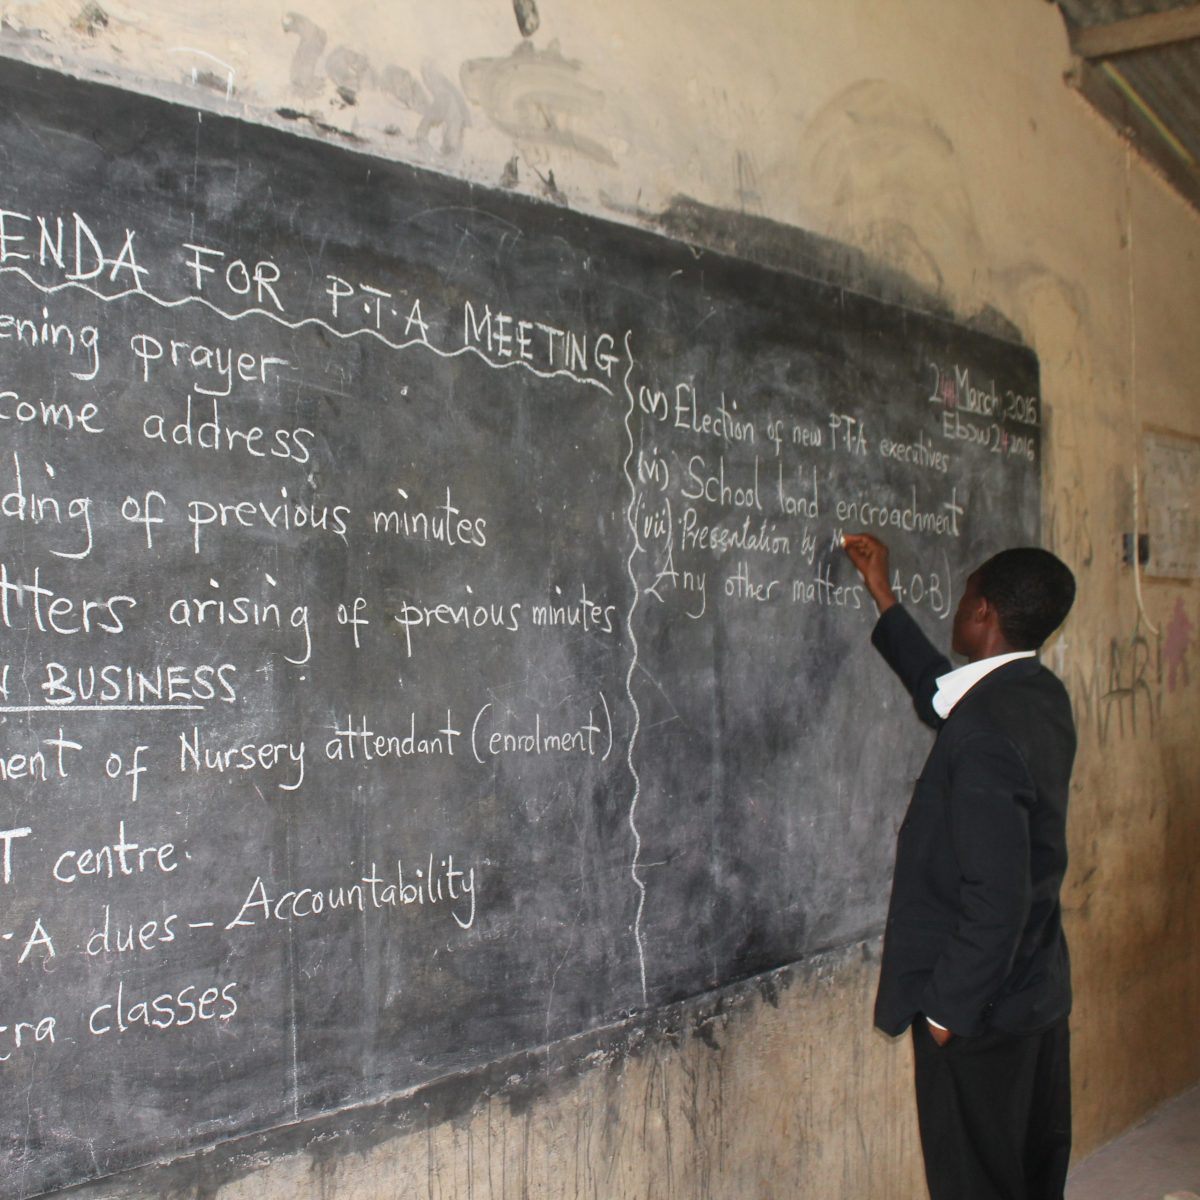 ENDA FOR P.T.A MEETING
ening prayer
come address
ding of previous minutes
tters arising of previous minutes
N BUSINESS
ment of Nursery attendant (enrolment)
T centre.
.A dues – Accountability
tra classes
March, 2016
(v) Election of new P.T.A executives
(vi) School land encroachment
(vii) Presentation by
Any other matters (A.O.B)